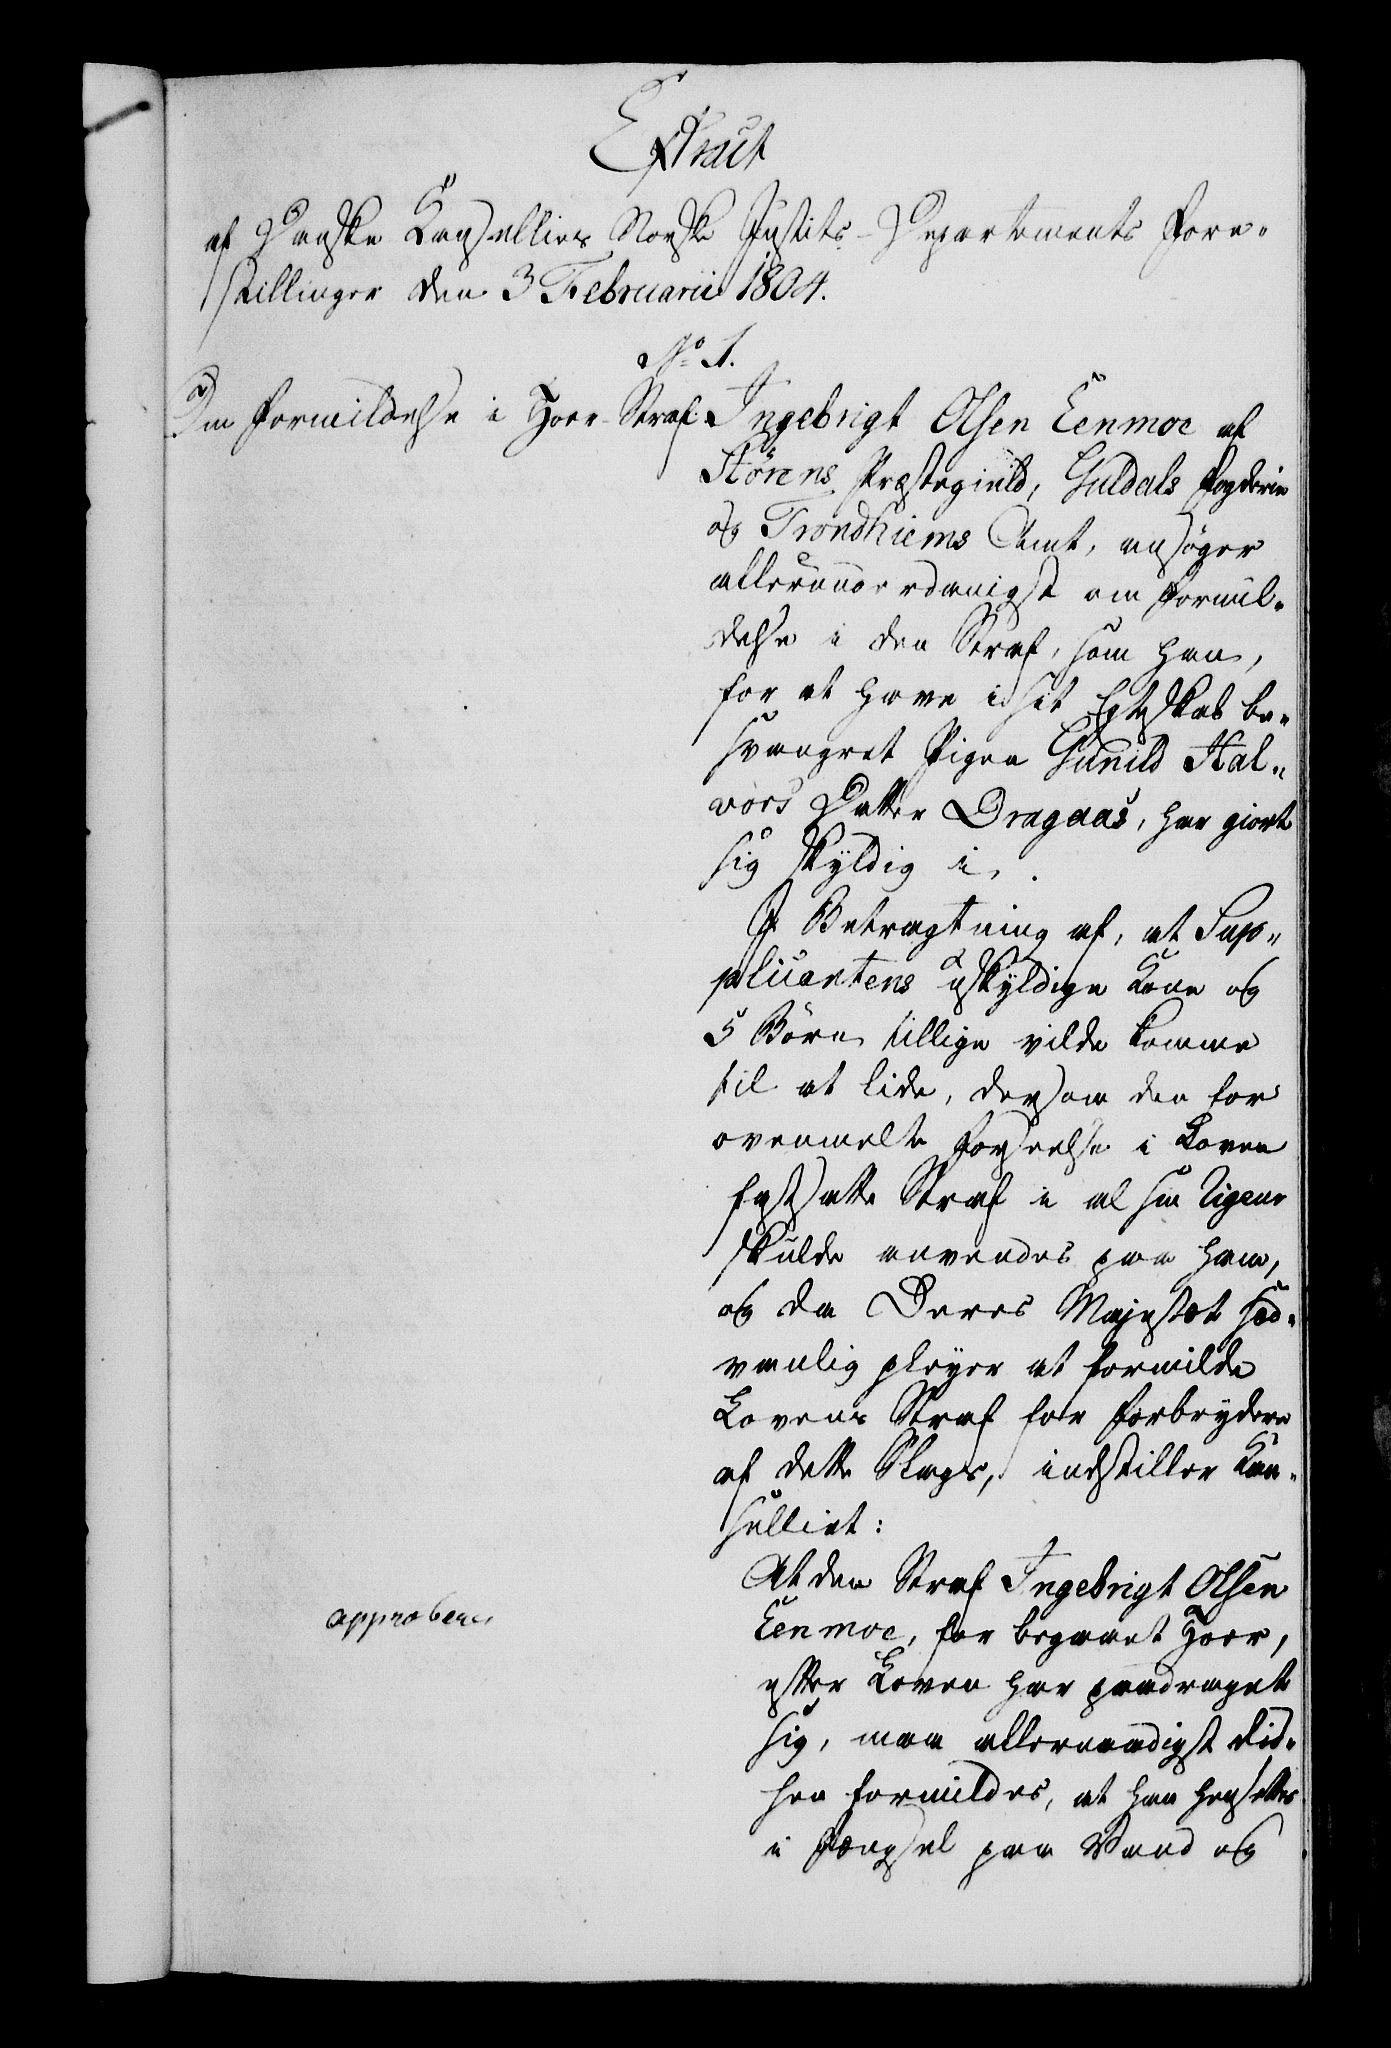 Extract
af Danske Cancelliets Norske Justits-Departements Fore-
stillinger den 3 Februarii 1804.
No 1.
Om Formildelse i Hoer-Straf.
Ingebrigt Olsen Eenmoe af
Störens Præstegield, Guldals Fogderie
og Trondhiems Amt, ansöger
allerunderdanigst om Formil-
delse i den Straf, som han,
for at have i sit Egteskab be-
svangret Pigen Gunild Hal-
vors Datter Dragaas, har giort
sig skyldig i.
I Betragtning af, at Sup-
plicantens uskyldige Kone og
5 Börn tillige vilde komme
til at lide, dersom den for
ovenmelte Forseelse i Loven
fastsatte Straf i al sin Rigeur
skulde anvendes paa ham,
og da Deres Majestæt sæd-
vanlig pleyer at formilde
Lovens Straf for Forbrydere
af dette Slags, indstiller Can-
celliet:
At den Straf Ingebrigt Olsen
Eenmoe, for begaaet Hoer,
efter Loven har paadraget
sig, maa allernaadigst did-
hen formildes, at han hensættes
approberes
i Fængsel paa Vand og